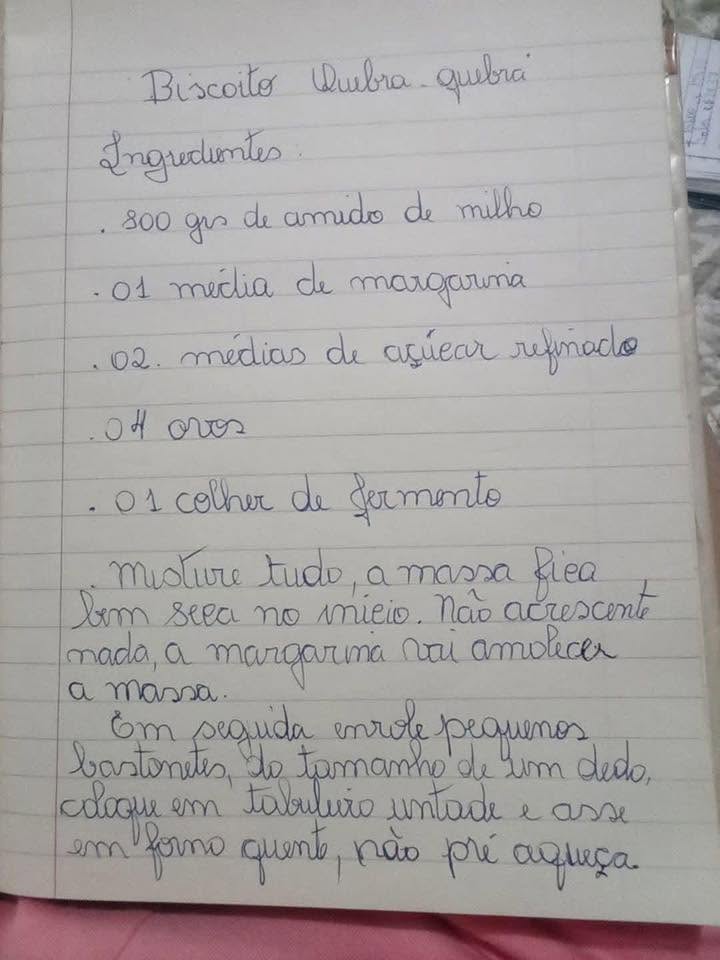 Biscoito Quebra-quebra
Ingredientes:
. 800 grs de amido de milho
. 01 média de margarina
. 02. médias de açúcar refinado
. 04 ovos
. 01 colher de fermento
. Misture tudo, a massa fica
bem seca no início. Não acrescente
nada, a margarina vai amolecer
a massa.
Em seguida enrole pequenos
bastonetes, do tamanho de um dedo,
coloque em tabuleiro untade e asse
em forno quente, não pré aqueça.